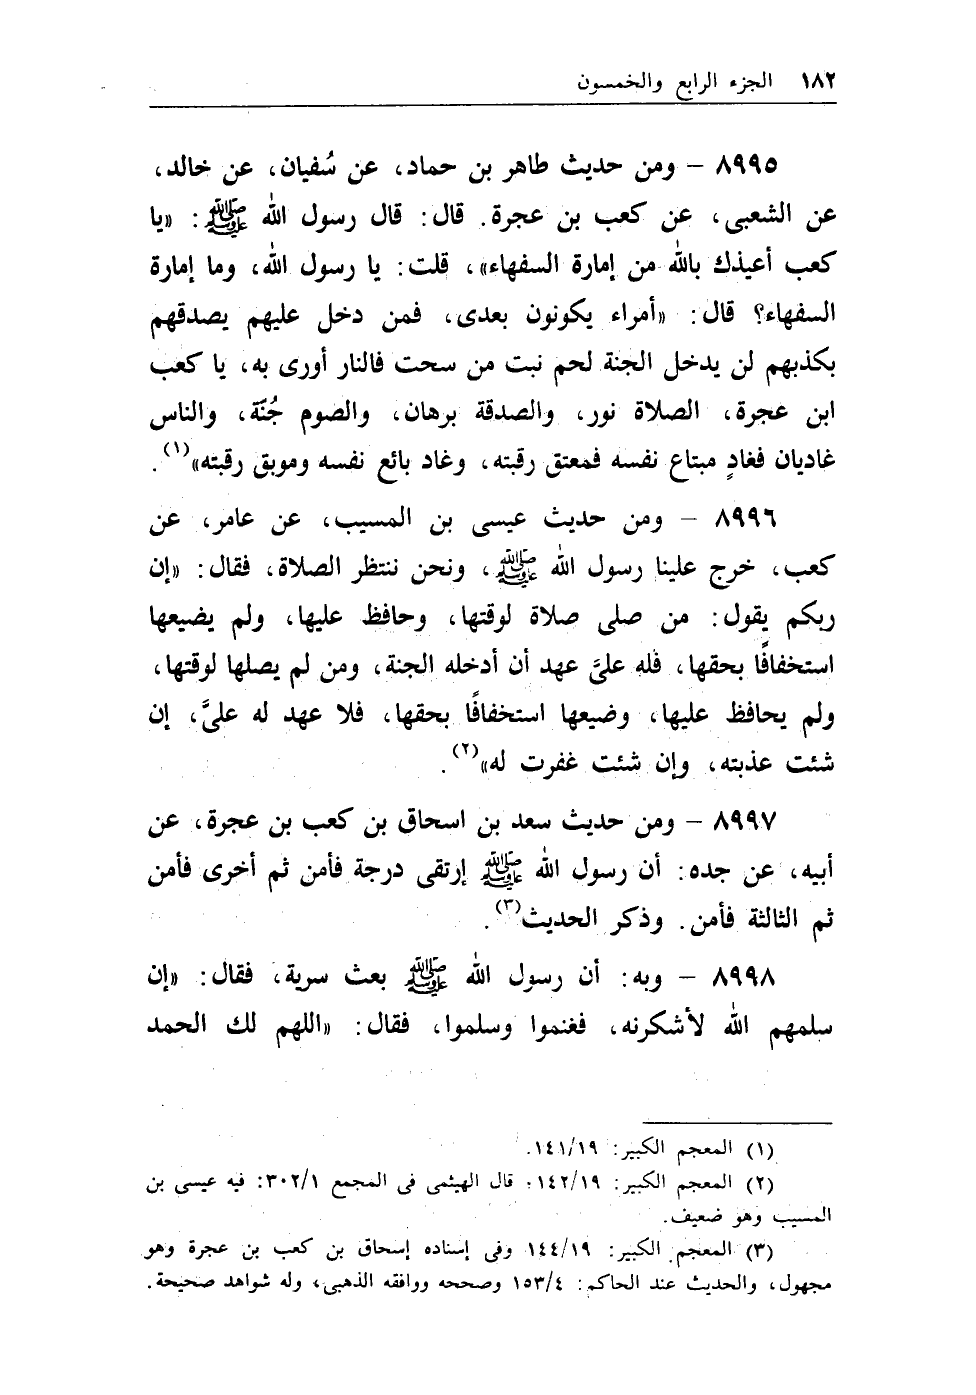 ١٨٢ الجزء الرابع والخمسون
٨٩٩٥ - ومن حديث طاهر بن حماد، عن سُفيان، عن خالد،
عن الشعبى، عن كعب بن عجرة. قال: قال رسول الله ﷺ: «يا
كعب أعيذك بالله من إمارة السفهاء»، قلت: يا رسول الله، وما إمارة
السفهاء؟ قال: «أمراء يكونون بعدى، فمن دخل عليهم يصدقهم
بكذبهم لن يدخل الجنة لحم نبت من سحت فالنار أورى به، يا كعب
ابن عجرة، الصلاة نور، والصدقة برهان، والصوم جُنّة، والناس
غاديان فغادٍ مبتاع نفسه فمعتق رقبته، وغاد بائع نفسه وموبق رقبته»(١).
٨٩٩٦ - ومن حديث عيسى بن المسيب، عن عامر، عن
كعب، خرج علينا رسول الله ﷺ، ونحن ننتظر الصلاة، فقال: «إن
ربكم يقول: من صلى صلاة لوقتها، وحافظ عليها، ولم يضيعها
استخفافًا بحقها، فله علىَّ عهد أن أدخله الجنة، ومن لم يصلها لوقتها،
ولم يحافظ عليها، وضيعها استخفافًا بحقها، فلا عهد له علىَّ، إن
شئت عذبته، وإن شئت غفرت له»(٢).
٨٩٩٧ - ومن حديث سعد بن اسحاق بن كعب بن عجرة، عن
أبيه، عن جده: أن رسول الله ﷺ إرتقى درجة فأمن ثم أخرى فأمن
ثم الثالثة فأمن. وذكر الحديث(٣).
٨٩٩٨ - وبه: أن رسول الله ﷺ بعث سرية، فقال: «إن
سلمهم الله لأشكرنه، فغنموا وسلموا، فقال: «اللهم لك الحمد
(١) المعجم الكبير: ١٤١/١٩.
(٢) المعجم الكبير: ١٤٢/١٩، قال الهيثمى فى المجمع ٣٠٢/١: فيه عيسى بن
المسيب وهو ضعيف.
(٣) المعجم الكبير: ١٤٤/١٩ وفى إسناده إسحاق بن كعب بن عجرة وهو
مجهول، والحديث عند الحاكم: ١٥٣/٤ وصححه ووافقه الذهبى، وله شواهد صحيحة.